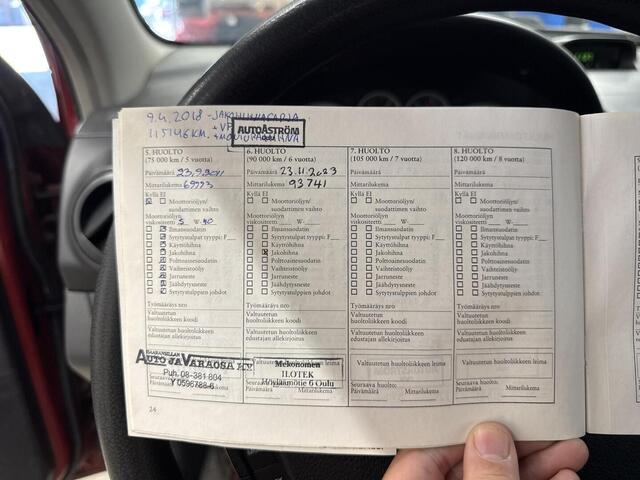 9.4.2018 - JAKOHIHNASARJA
115146 KM.
AUTOÅSTRÖM
5. HUOLTO
(75 000 km / 5 vuotta)
Päivämäärä 23.9.2011
Mittarilukema 69973
Kyllä EI
Moottoriöljyn/
suodattimen vaihto
Moottoriöljyn
viskositeetti 5 W- 40
Ilmansuodatin
Sytytystulpat tyyppi: F
Käyttöhihna
Jakohihna
Polttoainesuodatin
Vaihteistoöljy
Jarruneste
Jäähdytysneste
Sytytystulppien johdot
Työmääräys nro
Valtuutetun
huoltoliikkeen koodi
Valtuutetun huoltoliikkeen
edustajan allekirjoitus
AUTO JA VARAOSA KY
Puh. 08-381 804
Y 0596788-6
24
6. HUOLTO
(90 000 km / 6 vuotta)
Päivämäärä 23.11.2023
Mittarilukema 93741
Kyllä EI
Moottoriöljyn/
suodattimen vaihto
Moottoriöljyn
viskositeetti W-
Ilmansuodatin
Sytytystulpat tyyppi: F
Käyttöhihna
Jakohihna
Polttoainesuodatin
Vaihteistoöljy
Jarruneste
Jäähdytysneste
Sytytystulppien johdot
Työmääräys nro
Valtuutetun
huoltoliikkeen koodi
Valtuutetun huoltoliikkeen
edustajan allekirjoitus
Valtuutetun huoltoliikkeen leima
Mekonomen
ILOTEK
Höyläämötie 6 Oulu
Seuraava huolto:
Päivämäärä Mittarilukema
7. HUOLTO
(105 000 km / 7 vuotta)
Päivämäärä
Mittarilukema
Kyllä EI
Moottoriöljyn/
suodattimen vaihto
Moottoriöljyn
viskositeetti W-
Ilmansuodatin
Sytytystulpat tyyppi: F
Käyttöhihna
Jakohihna
Polttoainesuodatin
Vaihteistoöljy
Jarruneste
Jäähdytysneste
Sytytystulppien johdot
Työmääräys nro
Valtuutetun
huoltoliikkeen koodi
Valtuutetun huoltoliikkeen
edustajan allekirjoitus
Valtuutetun huoltoliikkeen leima
Seuraava huolto:
Päivämäärä Mittarilukema
8. HUOLTO
(120 000 km / 8 vuotta)
Päivämäärä
Mittarilukema
Kyllä EI
Moottoriöljyn/
suodattimen vaihto
Moottoriöljyn
viskositeetti W-
Ilmansuodatin
Sytytystulpat tyyppi: F
Käyttöhihna
Jakohihna
Polttoainesuodatin
Vaihteistoöljy
Jarruneste
Jäähdytysneste
Sytytystulppien johdot
Työmääräys nro
Valtuutetun
huoltoliikkeen koodi
Valtuutetun huoltoliikkeen
edustajan allekirjoitus
Valtuutetun huoltoliikkeen leima
Seuraava huolto:
Päivämäärä Mittarilukema